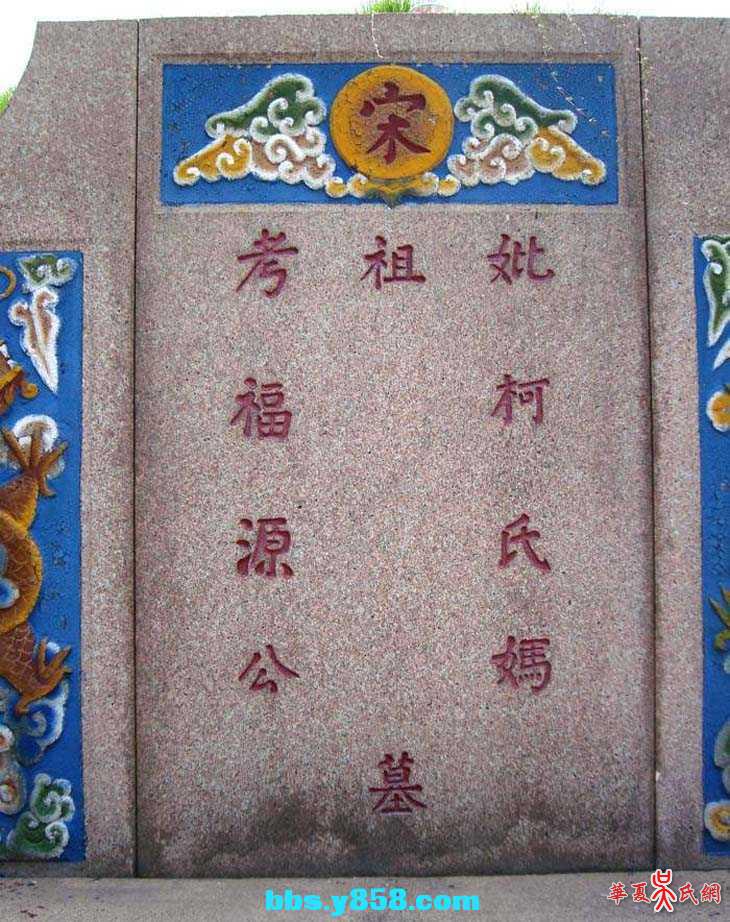 宋
妣柯氏媽
祖
墓
考福源公
bbs.y858.com
華夏吳氏網